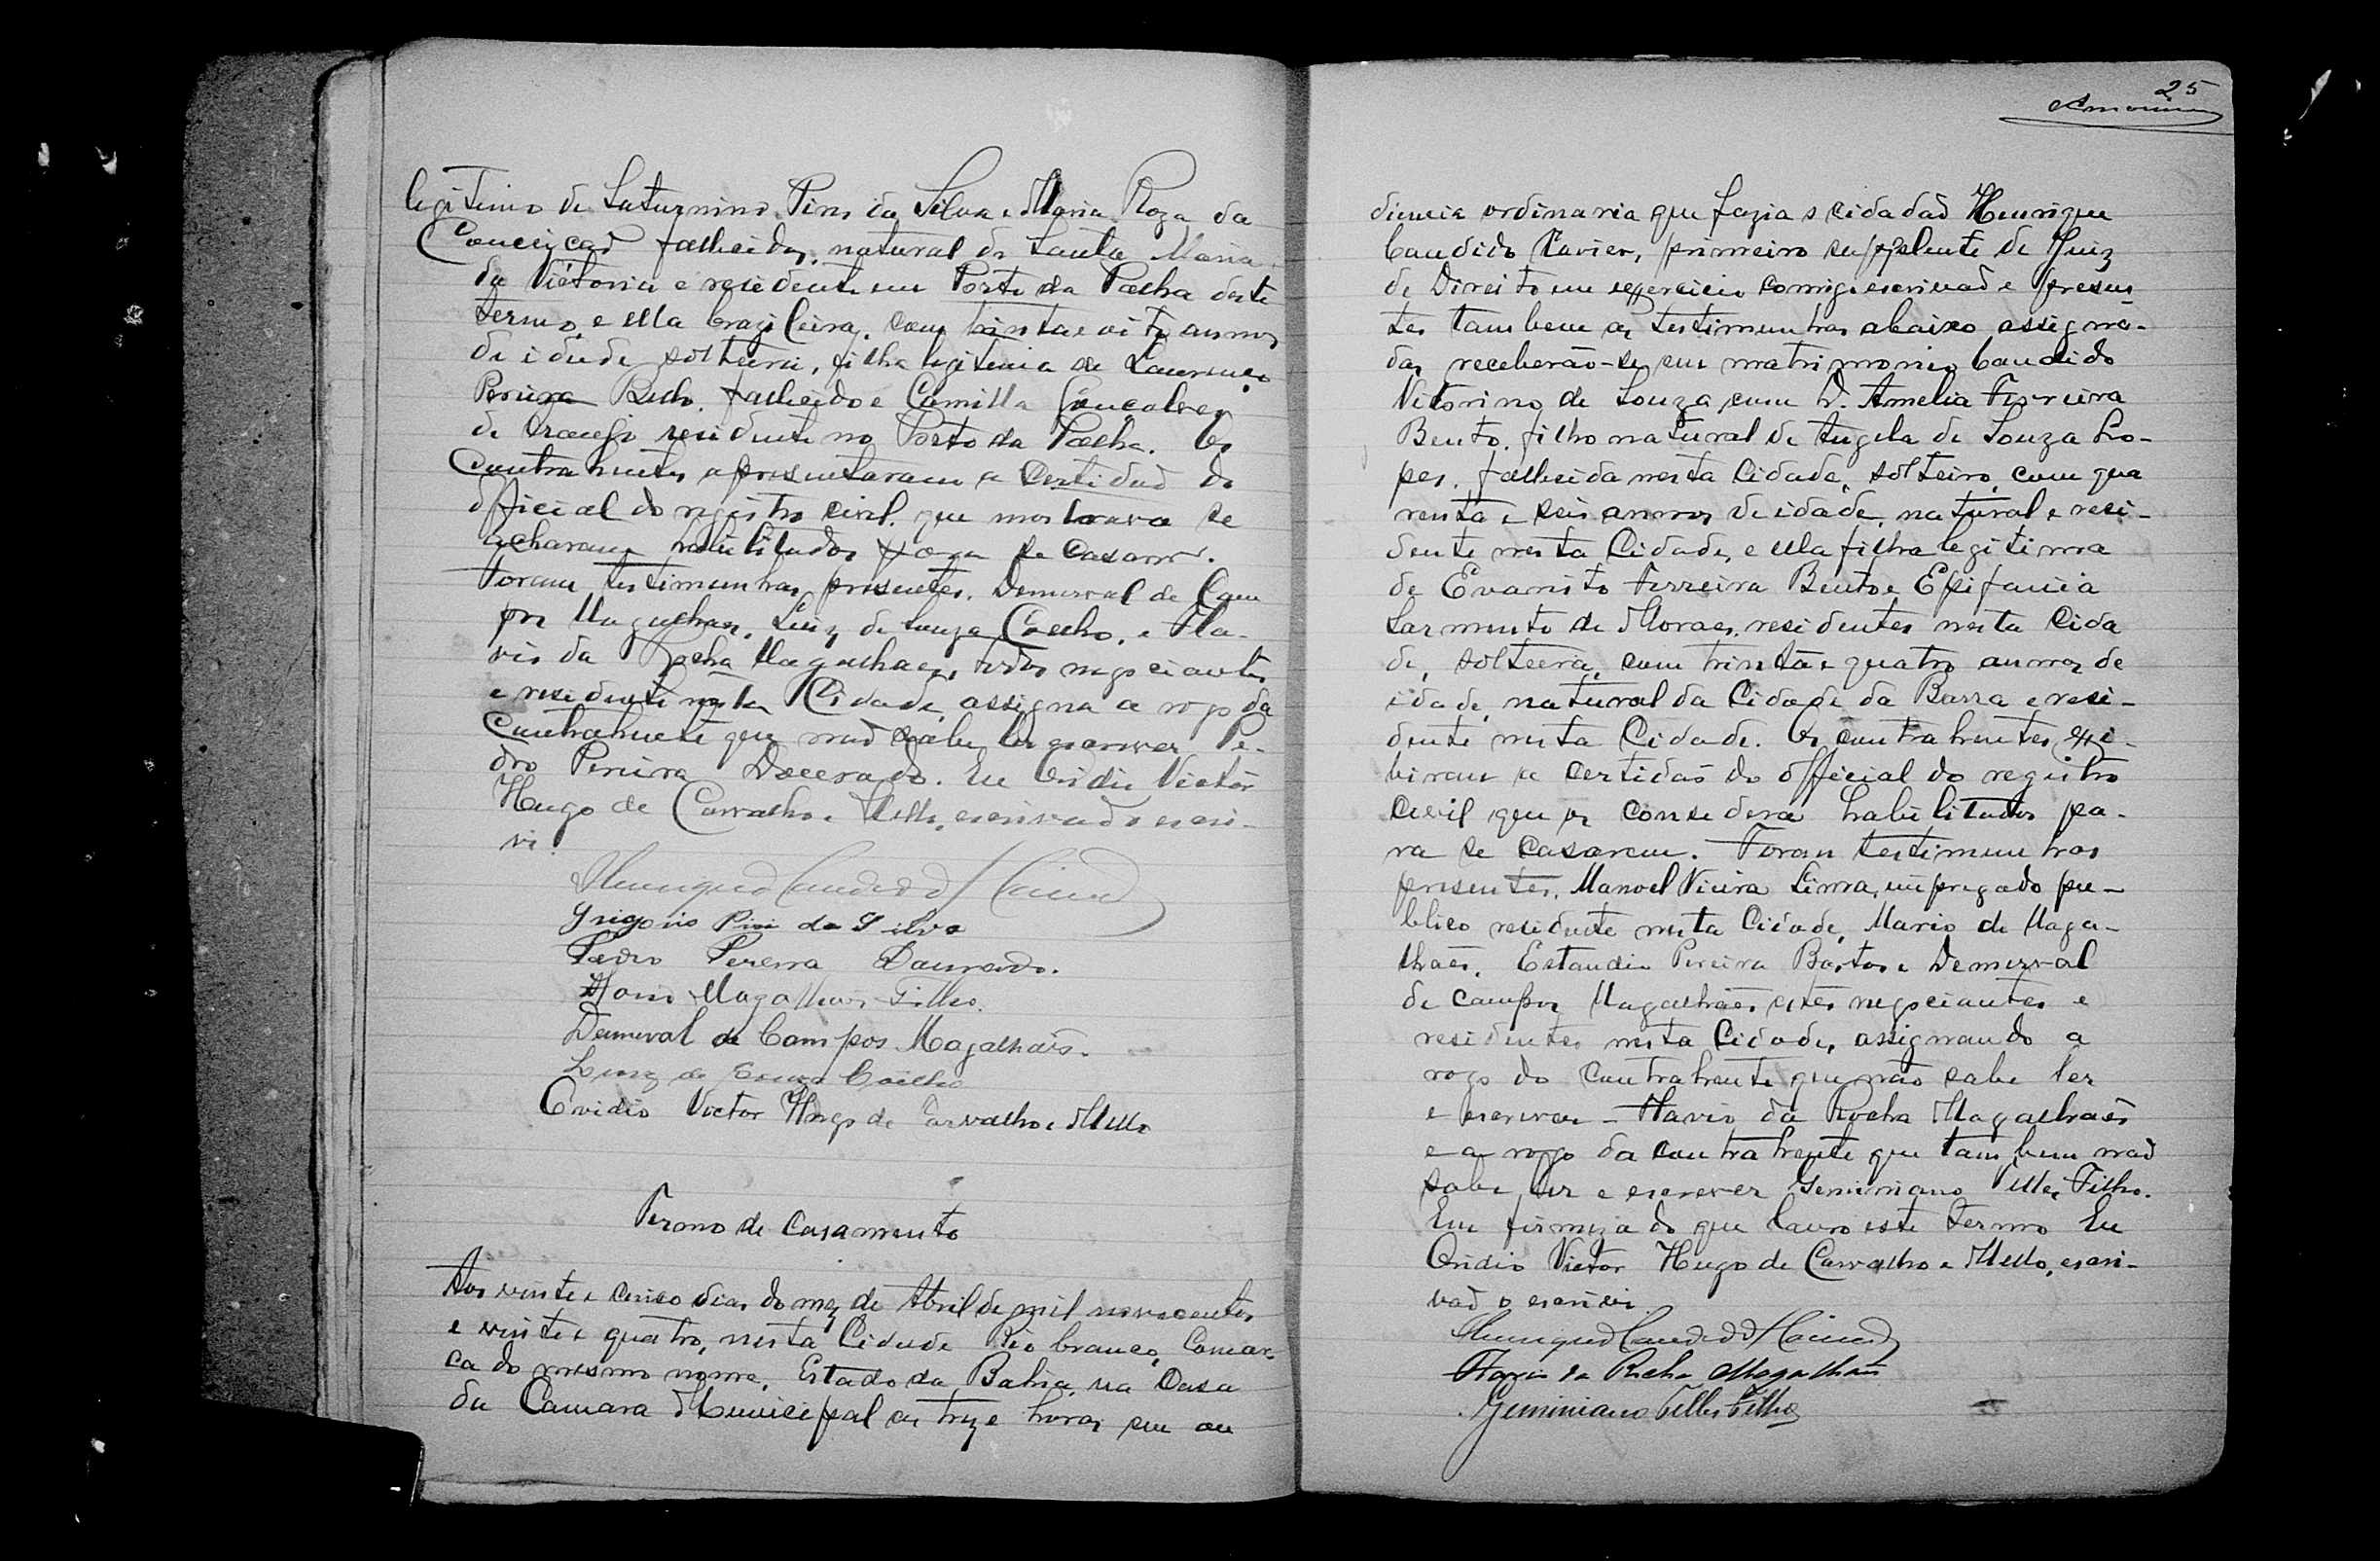 legitimo de Saturnino Pires da Silva e Maria Roza da
Conceiçaõ fallecidos, natural de Santa Maria
da Victoria e residente em Porto da Palha deste
termo, e ella brazileira, com trinta e oito annos
de idade solteira, filha legitima de Lourenço
Pereira fallecido e Camilla Gonçalves
de Araujo residente no Porto da Palha. Os
Contrahentes apresentaram a Certidaõ do
official do registro civil, que mostrava se
acharam habilitados para se casarem.
Foram testimunhas presentes, Demerval de Cam
pos Magalhaes, Luiz de Souza Coelho, e Fla-
vio da Rocha Magalhaes, todos negociantes
e residente nesta Cidade, assigna a rogo da
Contrahente que naõ sabe ler escrever Pe-
dro Pereira Dourado. Eu Ovidio Victor
Hugo de Carvalho e Mello, escrivaõ o escri-
vi
Henrique Candido
Grigorio Piris da Silva
Pedro Pereira Dourado.
Magalhães Filho.
Demerval de Campos Magalhaĩs.
Luiz de Souza Coelho
Ovidio Victor Hugo de Carvalho e Mello
Termo de Casamento
Aos vinte e cinco dias do mez de Abril de mil novecentos
e vinte e quatro, nesta Cidade Rio branco, Comar-
ca do mesmo nome, Estado da Bahia, na Casa
da Camara Municipal as treze horas em au
25
Amorim
diencia ordinaria que fazia o cidadaõ Henrique
Candido Xavier, primeiro supplente de Juiz
de Direito em exercicio comigo escrivaõ e presen-
tes tambem as testimunhas abaixo assigna-
das, receberão-se em matrimonio Candido
Vitorino de Souza com D. Amelia Ferreira
Bento, filho natural de Angela de Souza Lo-
pes, fallecida nesta Cidade, solteiro, com qua
renta e seis annos de idade, natural e resi-
dente nesta Cidade, e ella filha legitima
de Evaristo Ferreira Bento e Epifania
Sarmento de Moraes, residentes nesta Cida
de, solteira, com trinta e quatro annos de
idade, natural da Cidade da Barra e resi-
dente nesta Cidade. Os contrahentes exi-
biram a certidaõ do official do registro
civil que os considera habilitados pa-
ra se casarem. Foram testimunhas
presentes, Manoel Vieira Lima, empregado pu-
blico residente nesta Cidade, Mario de Maga-
lhaẽs, Pereira Bastos e Demerval
de Campos Magalhães estes negociantes e
residentes nesta Cidade, assignando a
rogo do Contrahente que não sabe ler
e escrever - Flavio da Rocha Magalhaẽs
e a rogo da contrahente que tambem naõ
sabe ler e escrever Geminiano Telles Filho.
Em firmeza do que lavro este termo Eu
Ovidio Victor Hugo de Carvalho e Mello, escri-
vaõ o escrivi.
Henrique Candido
Flavio da Rocha Magalhães
Geminiano Telles Filho